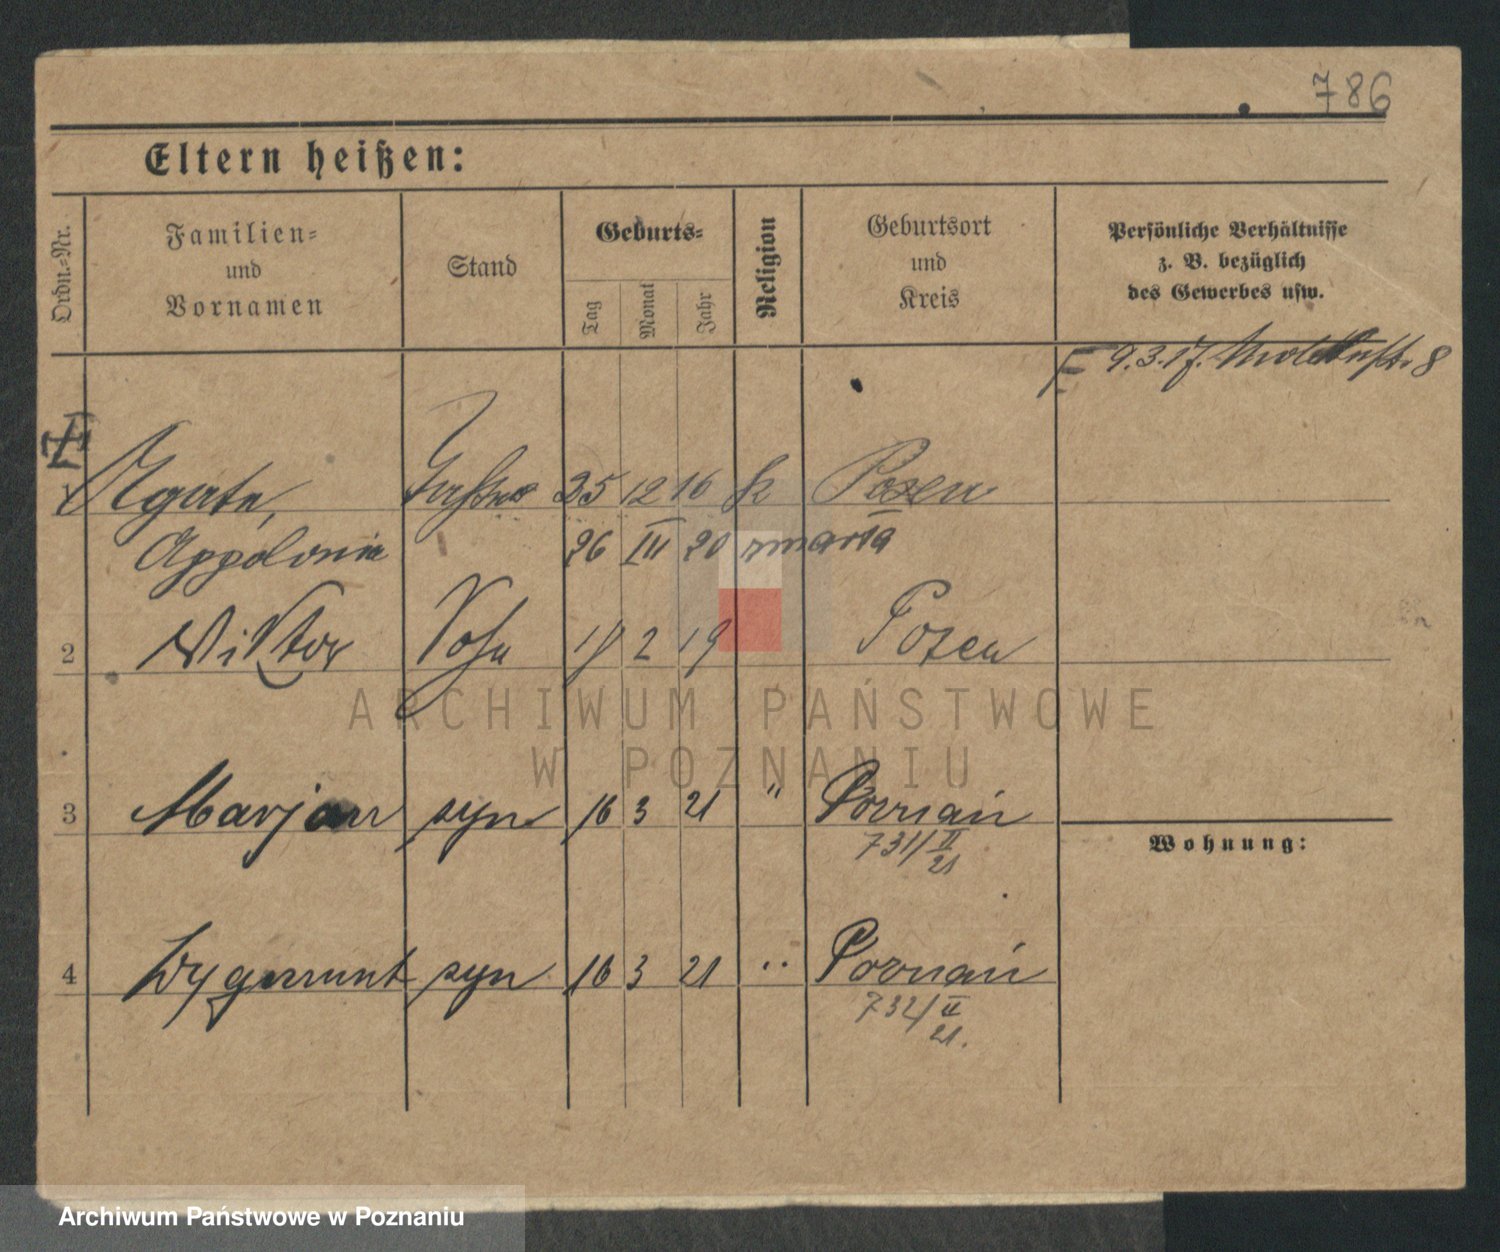 786
Eltern heißen:
Ordn.-Nr.
Familien-
und
Vornamen
Stand
Geburts-
Tag
Monat
Jahr
Religion
Geburtsort
und
Kreis
Persönliche Verhältnisse
z. B. bezüglich
des Gewerbes usw.
9.3.17. 8
Agate, 25 12 16 k Posen
Appolonia 26 III 20 zmarła
2 Wiktor Sohn 2 19 Posen
ARCHIWUM PAŃSTWOWE
W POZNANIU
3 Marjan syn 16 3 21 " Poznań
731/II
21
Wohnung:
4 Zygmunt syn 16 3 21 " Poznań
732/II
21.
Archiwum Państwowe w Poznaniu